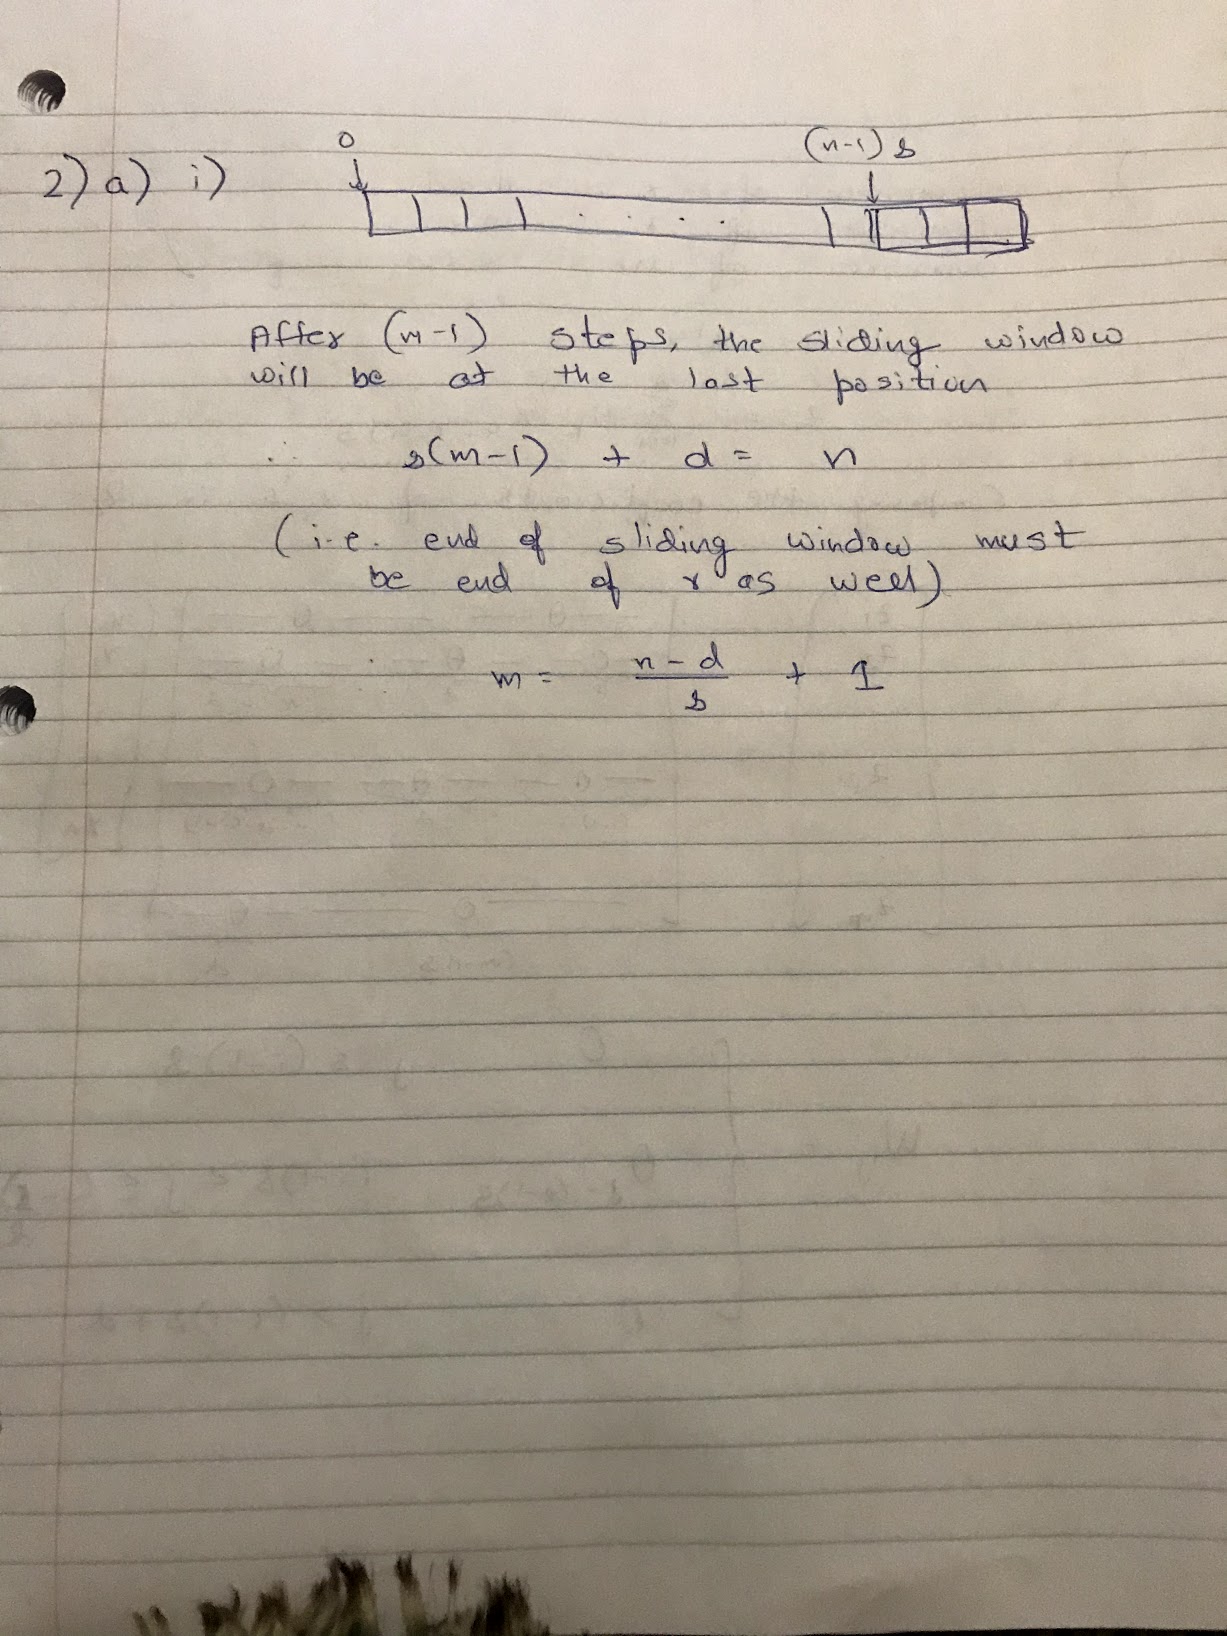 0 (n-1) s
2) a) i)
After (m-1) steps, the sliding window
will be at the last position
∴ s(m-1) + d = n
(i.e. end of sliding window must
be end of r as well)
∴ m = (n - d)/s + 1